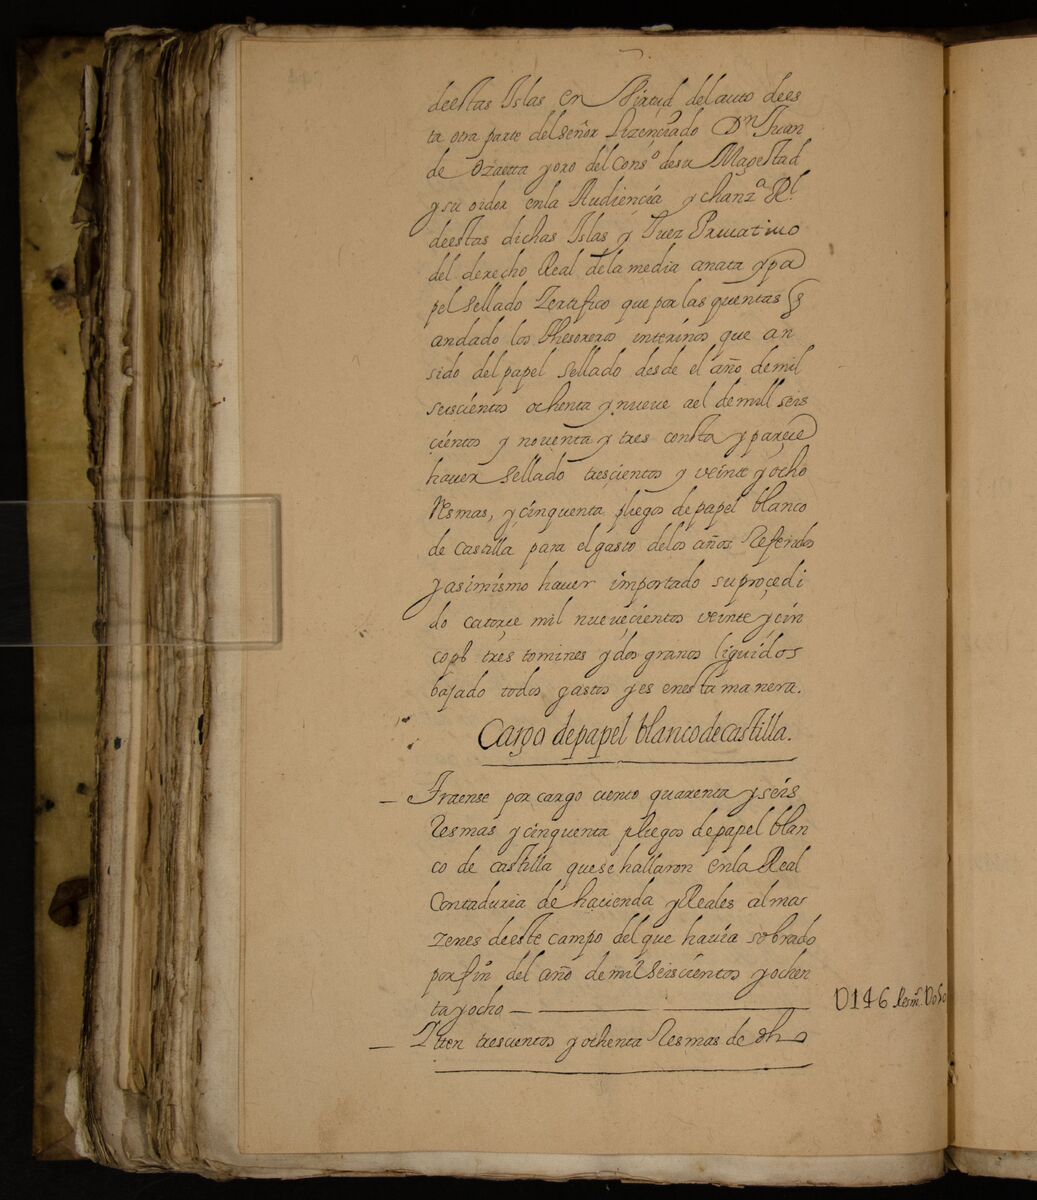 deestas Islas en Virtud del auto dees
ta otra parte del señor Lizenciado Dn Juan
de Ozaeta y oro del Conso desu Magestad
y su oidor enla Audiencia y chanza Rl
deestas dichas Islas y Juez Privativo
del derecho Real dela media anata y pa
pel sellado Zertifico que por las quentas q
an dado los thesoreros interinos que an
sido del papel sellado desde el año demil
seiscientos ochenta y nueve a el demill seis
cientos y noventa y tres consta y pareçe
haver sellado trescientos y veinte y ocho
Resmas, y cinquenta pliegos de papel blanco
de castilla para el gasto delos años Referidos
y asimismo haver importado su proçedi
do catorçe mil nueveçientos veinte y cin
co ps tres tomines y dos granos liquidos
bajado todos gastos y es enesta manera.
Cargo de papel blanco de castilla.
— Traense por cargo ciento quarenta y seis
Resmas y cinquenta pliegos de papel blan
co de castilla que se hallaron enla Real
Contaduria de hacienda y Reales alma
zenes deeste campo del que havia sobrado
por fin del año de mil seiscientos y ochen
ta y ocho — 0146 Resms 0050
— Yten trescientos y ochenta Resmas de dho